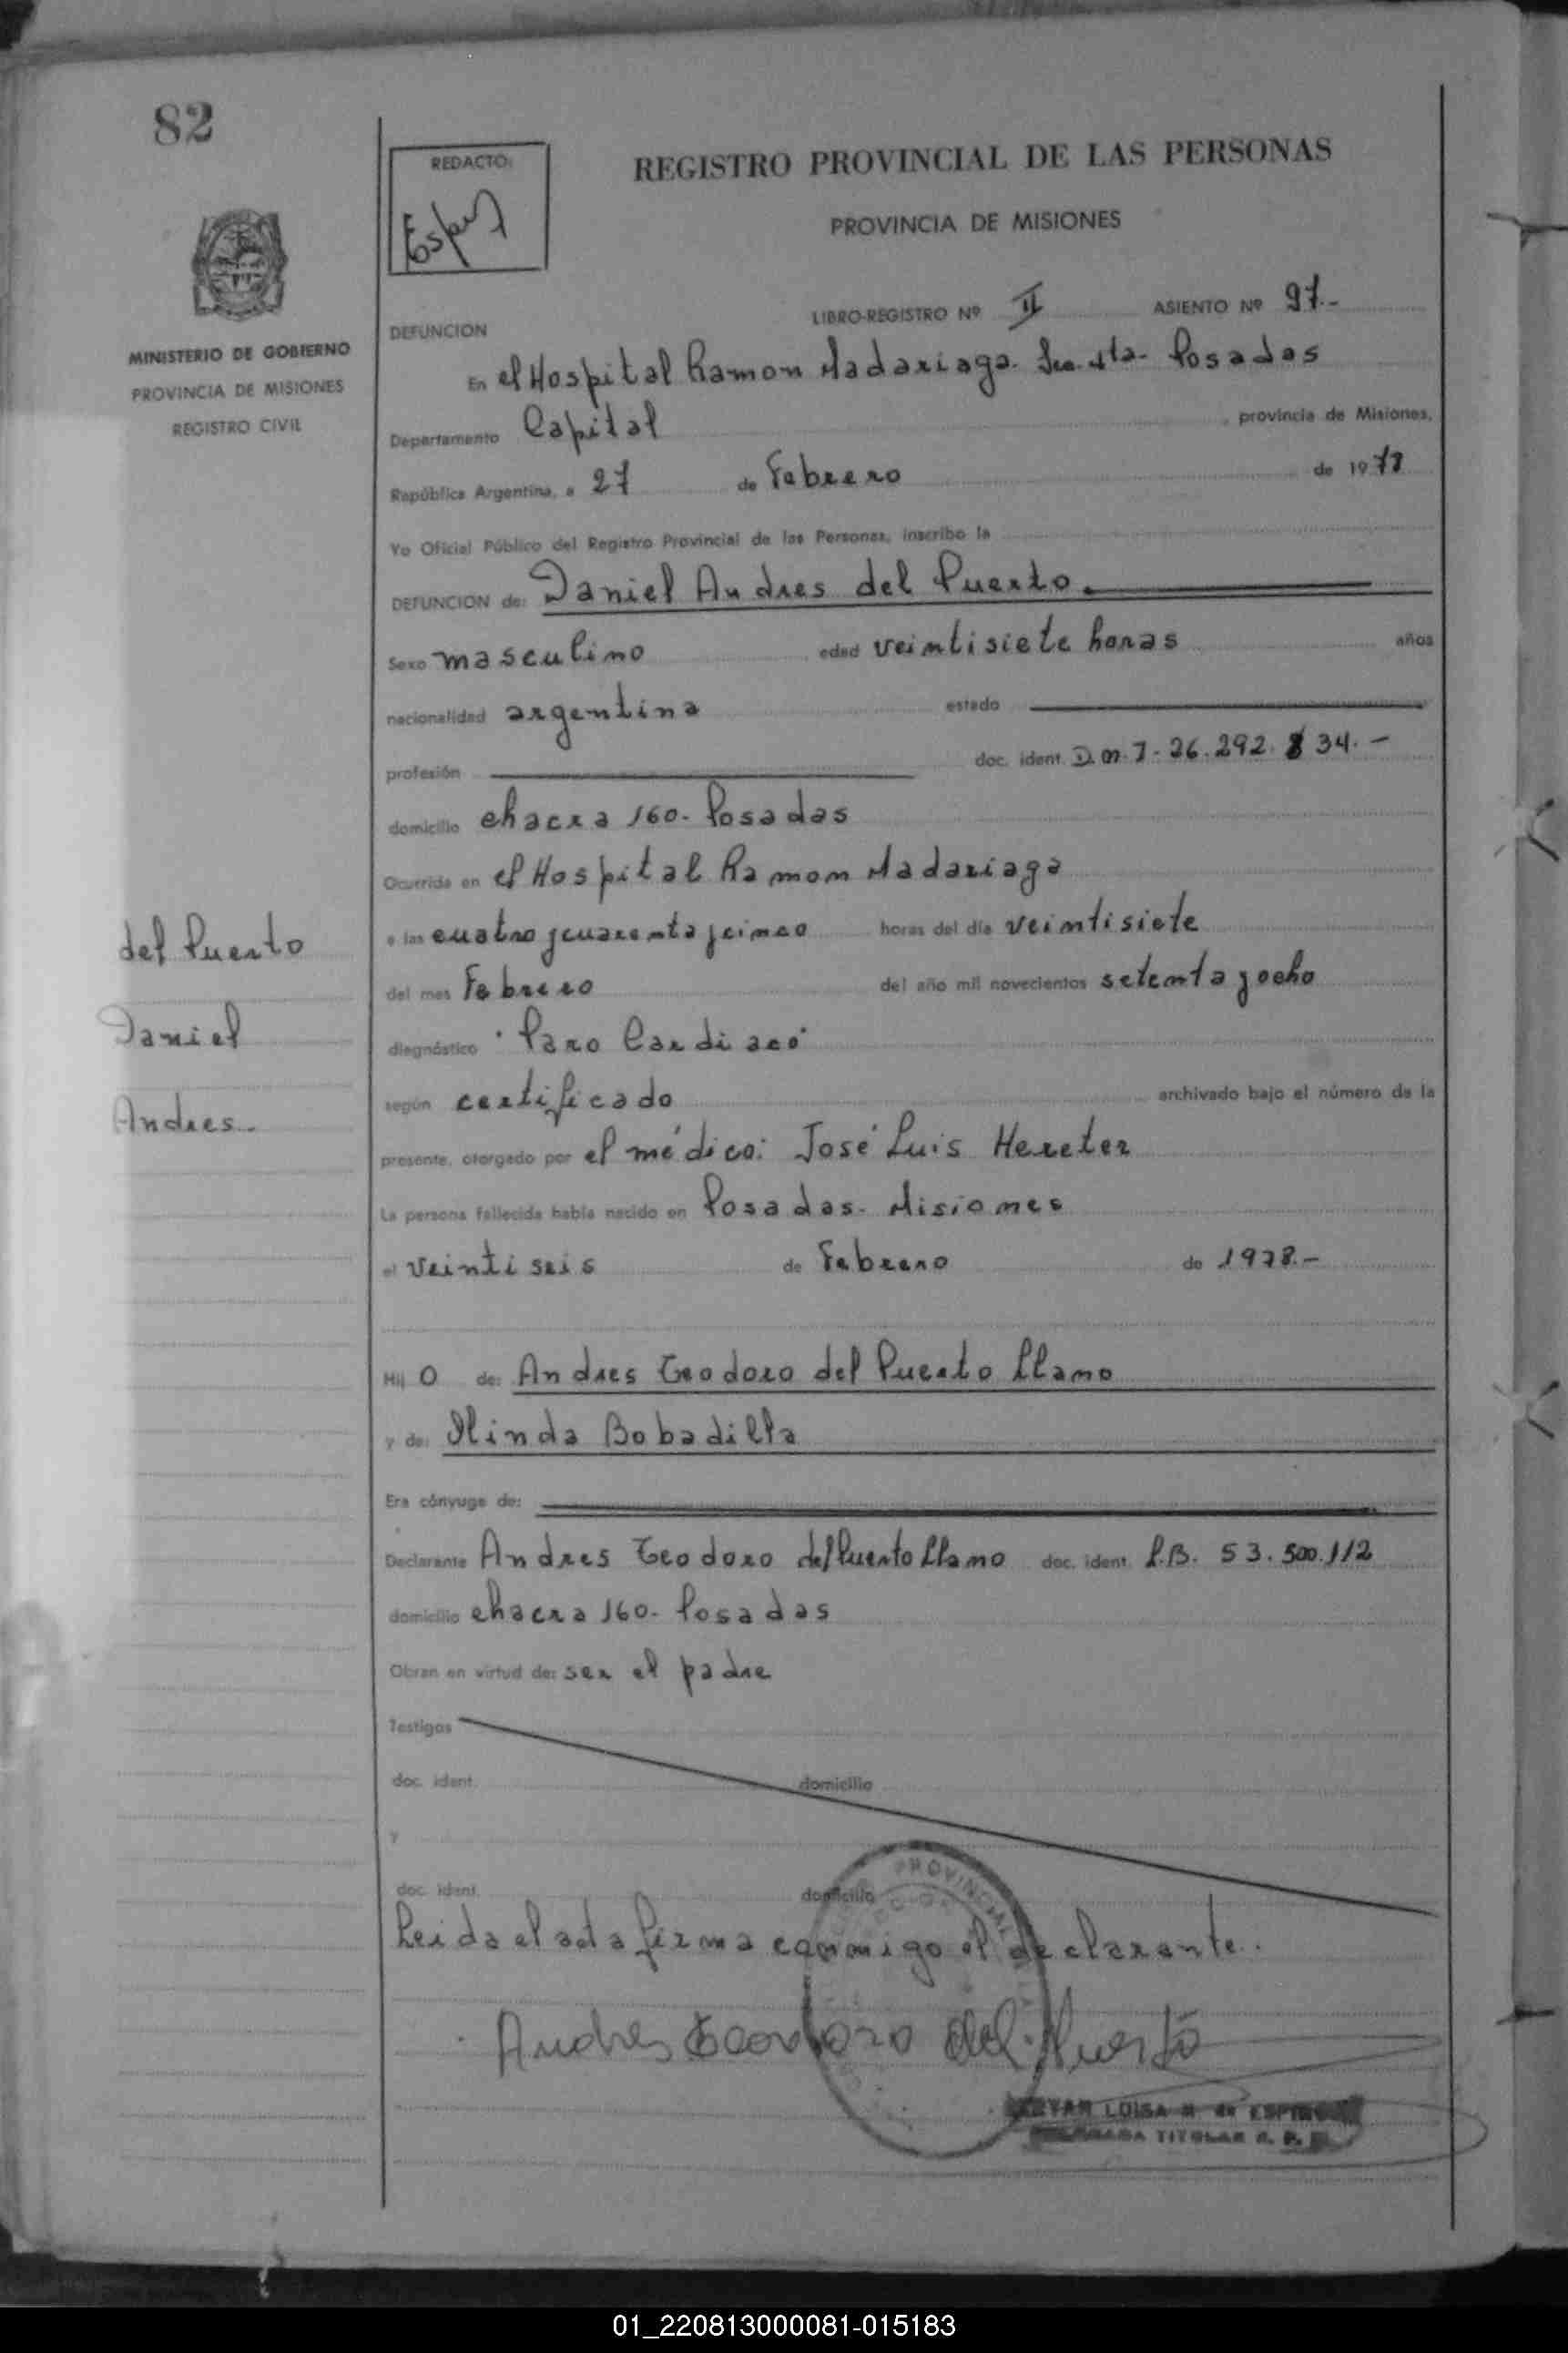 82
REDACTO:
REGISTRO PROVINCIAL DE LAS PERSONAS
PROVINCIA DE MISIONES
MINISTERIO DE GOBIERNO
PROVINCIA DE MISIONES
REGISTRO CIVIL
LIBRO-REGISTRO Nº II ASIENTO Nº 97.-
DEFUNCION
En el Hospital Ramon Madariaga. Sec. 4ta- Posadas
Departamento Capital , provincia de Misiones,
República Argentina, a 27 de Febrero de 1978
Yo Oficial Público del Registro Provincial de las Personas, inscribo la
DEFUNCION de: Daniel Andres del Puerto.
Sexo masculino edad veintisiete horas años
nacionalidad argentina estado
profesión doc. ident. D.N.I- 26.292.834.-
domicilio chacra 160- Posadas
Ocurrida en el Hospital Ramon Madariaga
a las cuatro y cuarenta y cinco horas del día veintisiete
del mes Febrero del año mil novecientos setenta y ocho
diagnóstico "Paro Cardiaco"
según certificado archivado bajo el número de la
presente, otorgado por el médico: José Luis Hereter
La persona fallecida había nacido en Posadas- Misiones
el veintiseis de Febrero de 1978.-
Hij o de: Andres Teodoro del Puerto Llano
y de: Ilinda Bobadilla
Era cónyuge de:
Declarante Andres Teodoro del Puerto Llano doc. ident. L.B. 53.500.112
domicilio chacra 160- Posadas
Obran en virtud de: ser el padre
Testigos
doc. ident. domicilio
y
doc. ident. domicilio
Leida el acta firma conmigo el declarante.
Andres Teodoro del Puerto
PROVINCIAL
LUISA M. de
TITULAR R. P.
del Puerto
Daniel
Andres.
01_220813000081-015183